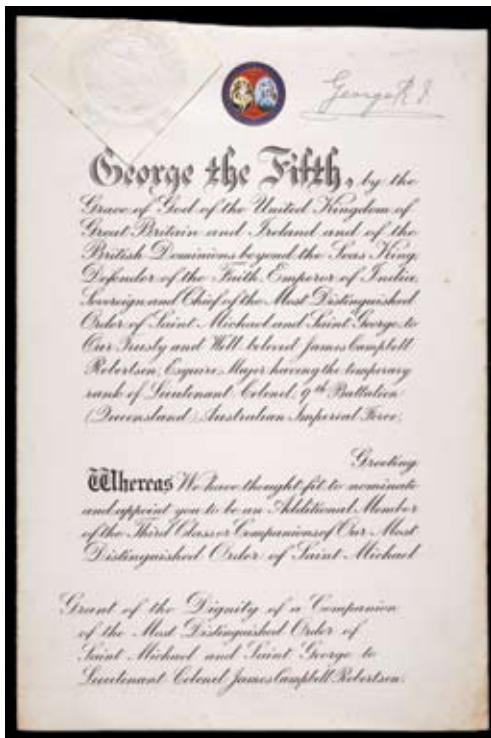 George R.I.
George the Fifth, by the
Grace of God of the United Kingdom of
Great Britain and Ireland and of the
British Dominions beyond the Seas King,
Defender of the Faith, Emperor of India,
Sovereign and Chief of the Most Distinguished
Order of Saint Michael and Saint George, to
Our Trusty and Well beloved James Campbell
Robertson, Esquire, Major having the temporary
rank of Lieutenant Colonel, 9th Battalion
(Queensland) Australian Imperial Force,
Greeting
Whereas We have thought fit to nominate
and appoint you to be an Additional Member
of the Third Class or Companions of Our Most
Distinguished Order of Saint Michael
Grant of the Dignity of a Companion
of the Most Distinguished Order of
Saint Michael and Saint George to
Lieutenant Colonel James Campbell Robertson.